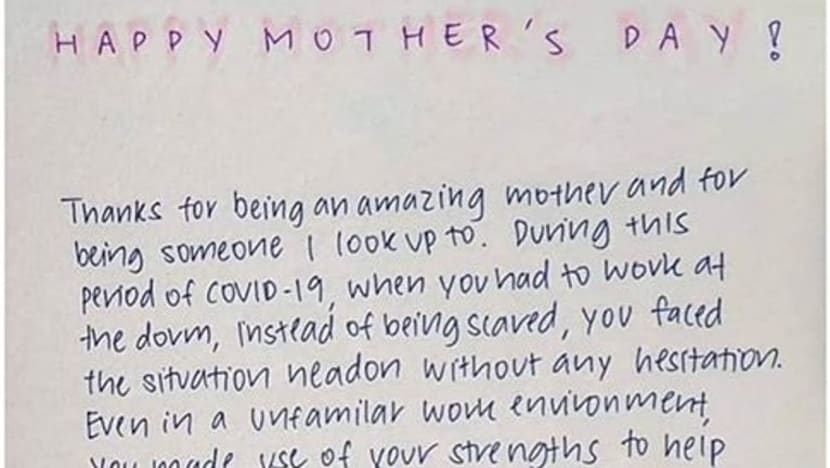 HAPPY MOTHER'S DAY!
Thanks for being an amazing mother and for
being someone I look up to. During this
period of COVID-19, when you had to work at
the dorm, instead of being scared, you faced
the situation headon without any hesitation.
Even in a unfamilar work environment,
you made use of your strengths to help